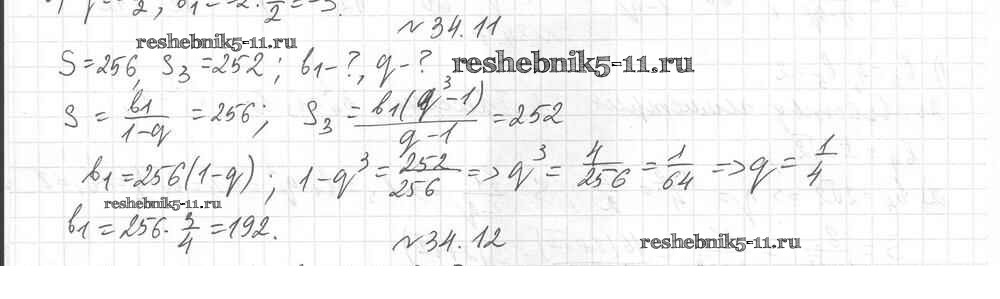 № 34.11
reshebnik5-11.ru
S=256, S₃=252; b₁-?, q-? reshebnik5-11.ru
S = b₁/(1-q) = 256; S₃ = b₁(q³-1)/(q-1) = 252
b₁=256(1-q); 1-q³=252/256 => q³=4/256=1/64 => q=1/4
reshebnik5-11.ru
b₁=256·3/4=192.
№ 34.12 reshebnik5-11.ru